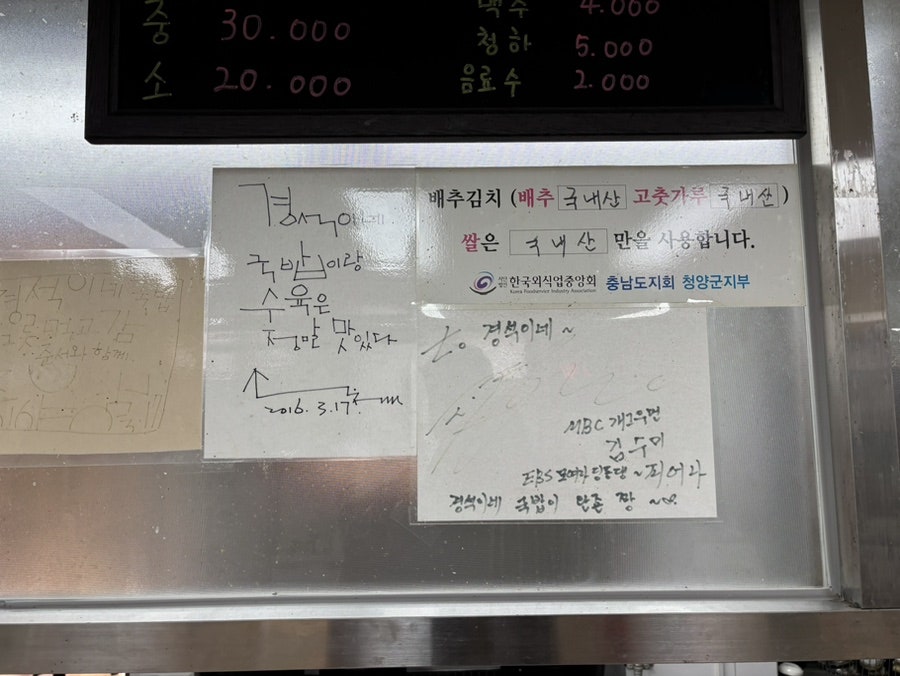 중 30.000
소 20.000
맥주 4.000
청하 5.000
음료수 2.000
경석이네
국밥이랑
수육은
정말 맛있다
2016. 3.17.
배추김치 (배추 국내산 고춧가루 국내산)
쌀은 국내산 만을 사용합니다.
한국외식업중앙회 충남도지회 청양군지부
Korea Foodservice Industry Association
경석이네~
MBC 개그우먼
김수미
EBS 모여라 딩동댕 ~ 피어라
경석이네 국밥이 단존 짱 ~
경석이네 국밥
준서와 함께